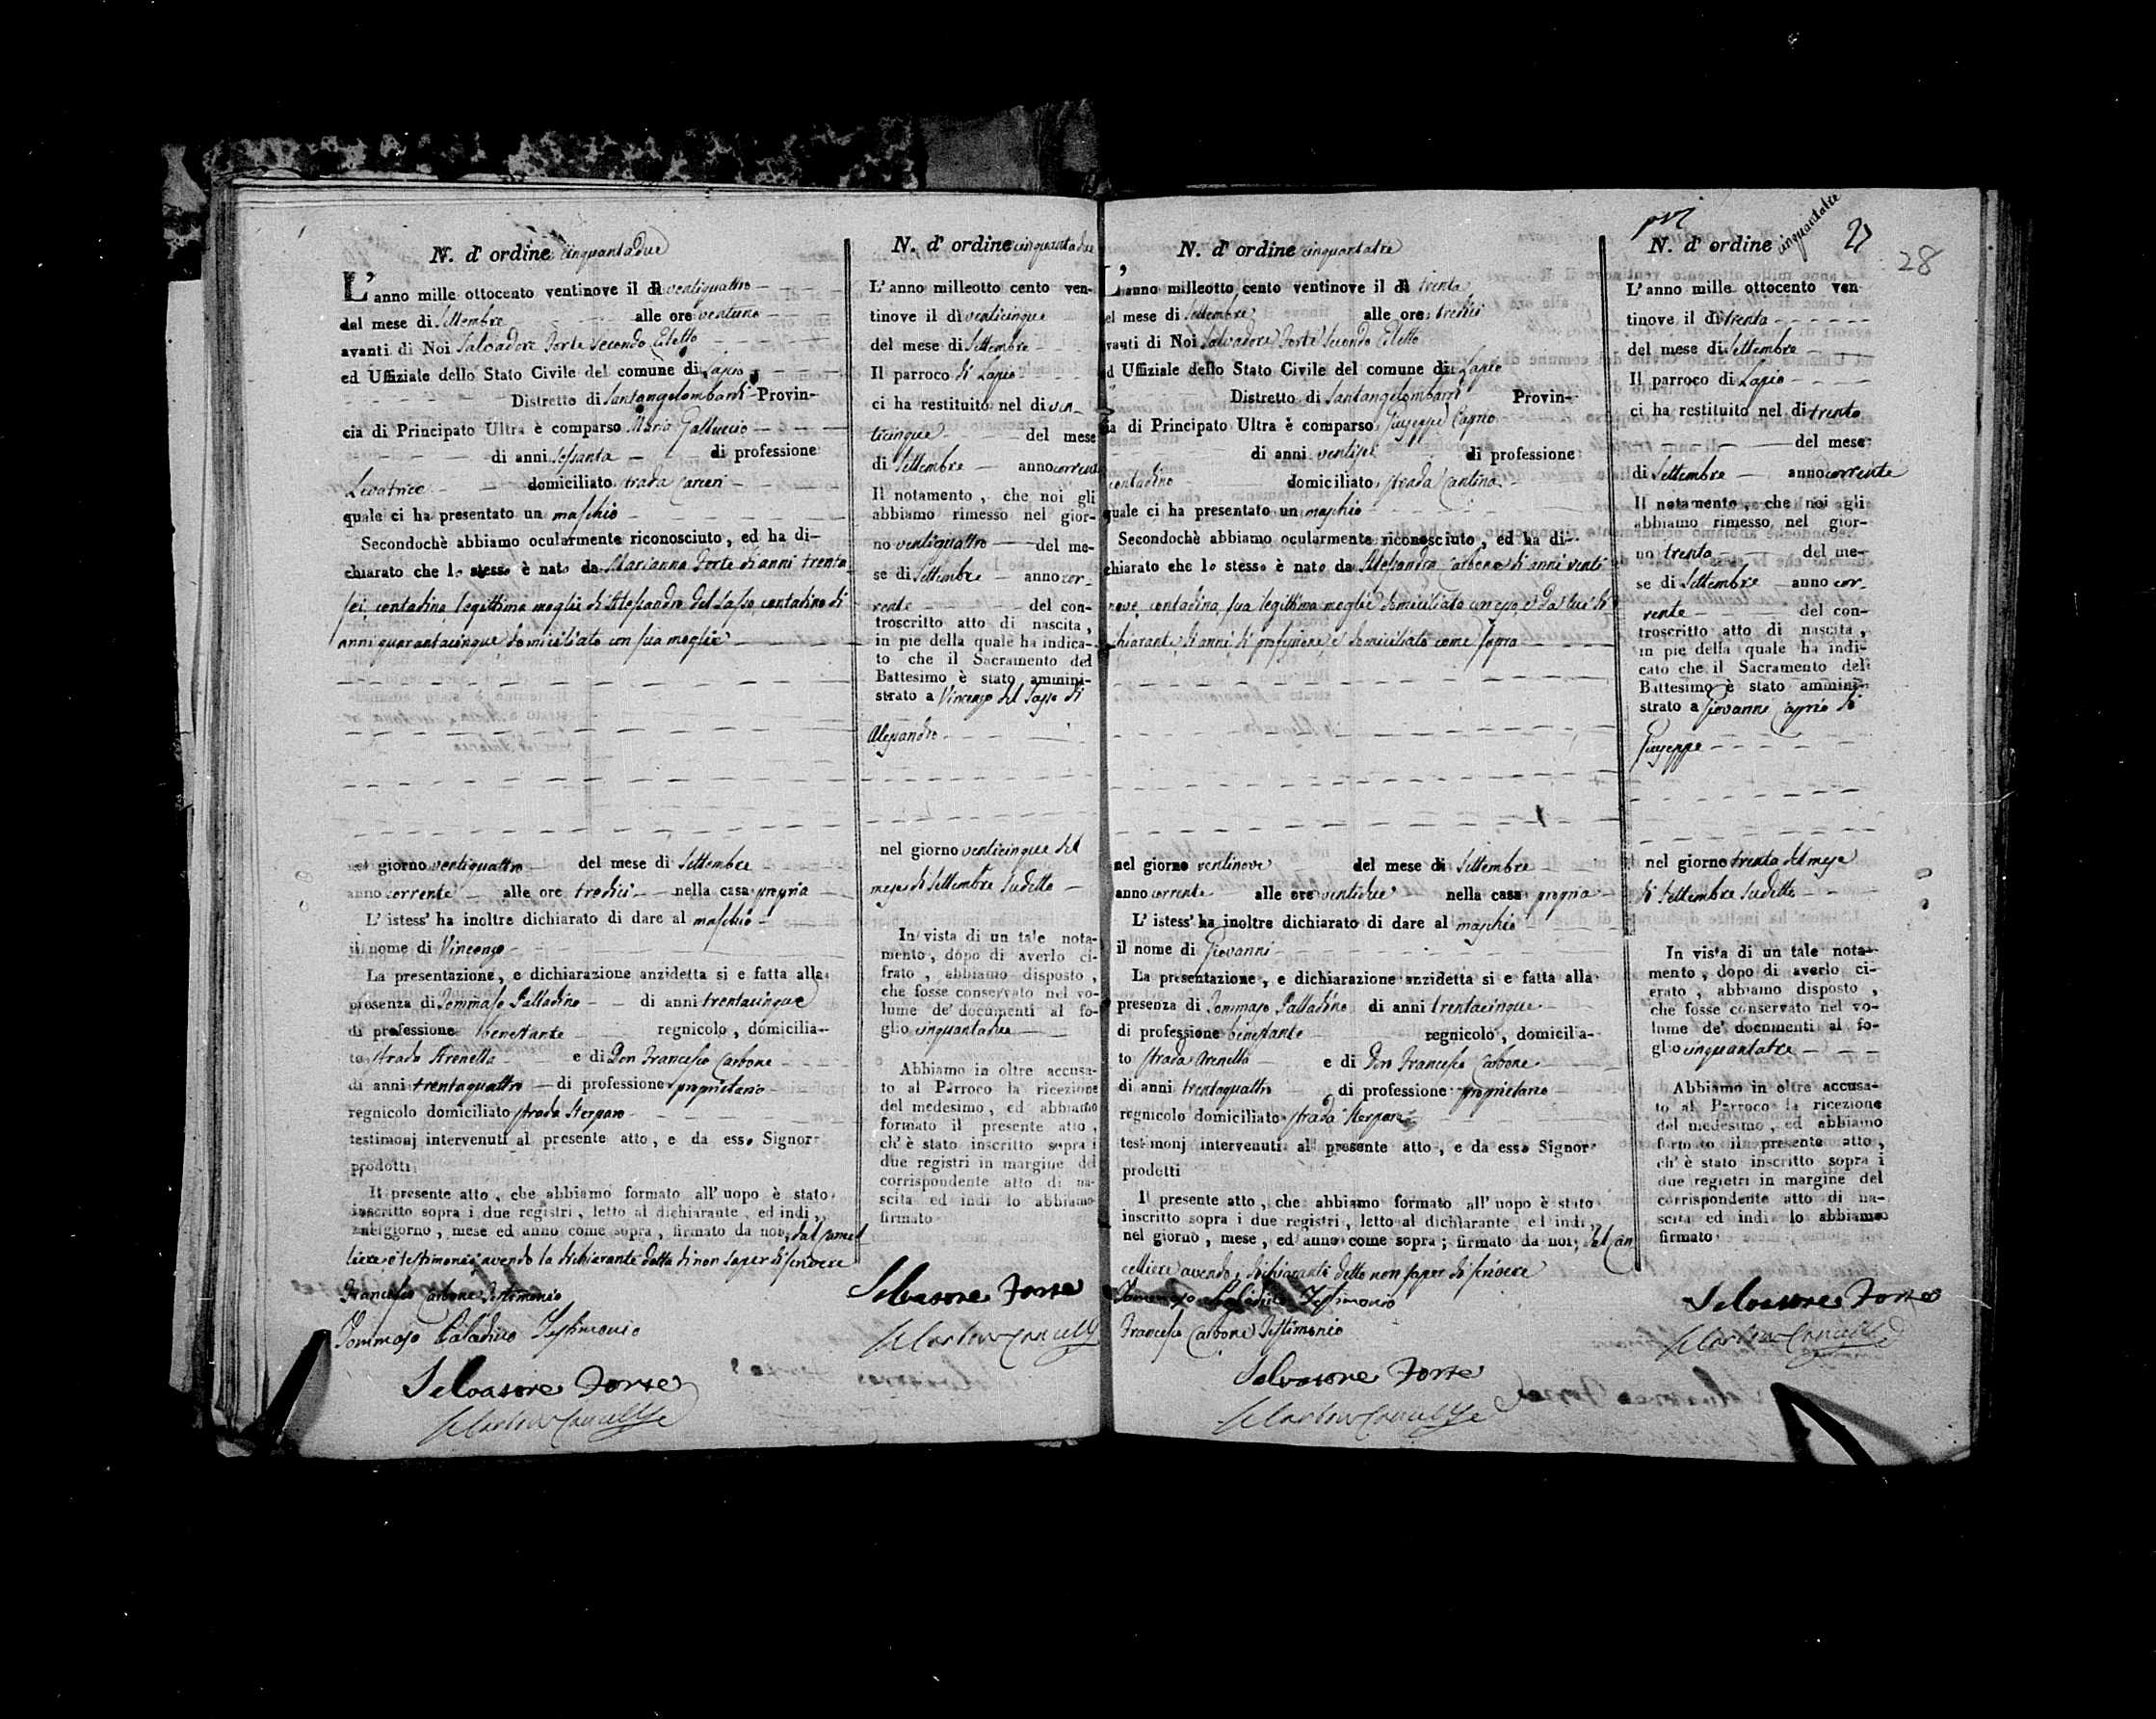 N. d' ordine cinquantadue
L' anno mille ottocento ventinove il dì ventiquattro
del mese di Settembre alle ore ventuno
avanti di Noi Salvadore Forte Secondo Eletto
ed Uffiziale dello Stato Civile del comune di Lapio
Distretto di Santangelombardi Provin-
cia di Principato Ultra è comparso Maria Galluccio
di anni sessanta di professione
Levatrice domiciliato strada Carceri
quale ci ha presentato un maschio
Secondochè abbiamo ocularmente riconosciuto, ed ha di-
chiarato che lo stesso è nato da Marianna Forte di anni trenta
sei, contadina, legittima moglie di Alessandro del Sasso, contadino di
anni quarantacinque, domiciliato con sua moglie
nel giorno ventiquattro del mese di Settembre
anno corrente alle ore tredici nella casa propria
L' istess' ha inoltre dichiarato di dare al maschio
il nome di Vincenzo
La presentazione, e dichiarazione anzidetta si e fatta alla
presenza di Tommaso Palladino di anni trentacinque
di professione benestante regnicolo, domicilia-
to strada Arenella e di Don Francesco Carbone
di anni trentaquattro di professione proprietario
regnicolo domiciliato strada Sterparo
testimonj intervenuti al presente atto, e da esso Signor
prodotti
Il presente atto, che abbiamo formato all' uopo è stato
inscritto sopra i due registri, letto al dichiarante, ed indi,
nel giorno, mese ed anno come sopra, firmato da noi, dal Cancel
liere e testimoni avendo la dichiarante detto di non saper di scrivere
Francesco Carbone Testimonio
Tommaso Paladino Testimonio
Salvadore Forte
N. d' ordine cinquantadue
L' anno milleotto cento ven-
tinove il dì venticinque
del mese di Settembre
Il parroco di Lapio
ci ha restituito nel dì ven-
ticinque del mese
di Settembre anno corrente
Il notamento, che noi gli
abbiamo rimesso nel gior-
no ventiquattro del me-
se di Settembre anno cor-
rente del con-
troscritto atto di nascita,
in pie della quale ha indica-
to che il Sacramento del
Battesimo è stato ammini-
strato a Vincenzo del Sasso di
Alessandro
nel giorno venticinque del
mese di Settembre sudetto
In vista di un tale nota-
mento, dopo di averlo ci-
frato, abbiamo disposto,
che fosse conservato nel vo-
lume de' documenti al fo-
glio cinquantadue
Abbiamo in oltre accusa-
to al Parroco la ricezione
del medesimo, ed abbiamo
formato il presente atto,
ch' è stato inscritto sopra i
due registri in margine del
corrispondente atto di na-
scita ed indi lo abbiamo
firmato
Salvadore Forte
N. d' ordine cinquantatre
L' anno milleotto cento ventinove il dì trenta
del mese di Settembre alle ore tredici
avanti di Noi Salvadore Forte Secondo Eletto
ed Uffiziale dello Stato Civile del comune di Lapio
Distretto di Santangelombardi Provin-
cia di Principato Ultra è comparso Giuseppe Caprio
di anni ventisei di professione
contadino domiciliato strada Cantina
quale ci ha presentato un maschio
Secondochè abbiamo ocularmente riconosciuto, ed ha di-
chiarato che lo stesso è nato da Alessandra Carbone di anni venti
nove, contadina, sua legittima moglie domiciliato con esso, e da lui di
chiarante, di anni, di professione, e domiciliato come sopra
nel giorno ventinove del mese di Settembre
anno corrente alle ore ventidue nella casa propria
L' istess' ha inoltre dichiarato di dare al maschio
il nome di Giovanni
La presentazione, e dichiarazione anzidetta si e fatta alla
presenza di Tommaso Palladino di anni trentacinque
di professione benestante regnicolo, domicilia-
to strada Arenella e di Don Francesco Carbone
di anni trentaquattro di professione proprietario
regnicolo domiciliato strada Sterparo
testimonj intervenuti al presente atto, e da esso Signor
prodotti
Il presente atto, che abbiamo formato all' uopo è stato
inscritto sopra i due registri, letto al dichiarante ed indi,
nel giorno, mese, ed anno come sopra; firmato da noi; dal Can
celliere avendo, dichiarante detto non saper di scrivere
Tommaso Paladino Testimonio
Francesco Carbone Testimonio
Salvadore Forte
27
28
N. d' ordine cinquantatre
L' anno mille ottocento ven-
tinove il dì trenta
del mese di Settembre
Il parroco di Lapio
ci ha restituito nel dì trenta
del mese
di Settembre anno corrente
Il notamento, che noi gli
abbiamo rimesso nel gior-
no trenta del me-
se di Settembre anno cor-
rente del con-
troscritto atto di nascita,
in pie della quale ha indi-
cato che il Sacramento del
Battesimo è stato ammini-
strato a Giovanni Caprio di
Giuseppe
nel giorno trenta del mese
di Settembre sudetto
In vista di un tale nota-
mento, dopo di averlo ci-
erato, abbiamo disposto,
che fosse conservato nel vo-
lume de' documenti al fo-
glio cinquantatre
Abbiamo in oltre accusa-
to al Parroco la ricezione
del medesimo, ed abbiamo
formato il presente atto,
ch' è stato inscritto sopra i
due registri in margine del
corrispondente atto di na-
scita ed indi lo abbiamo
firmato
Salvadore Forte